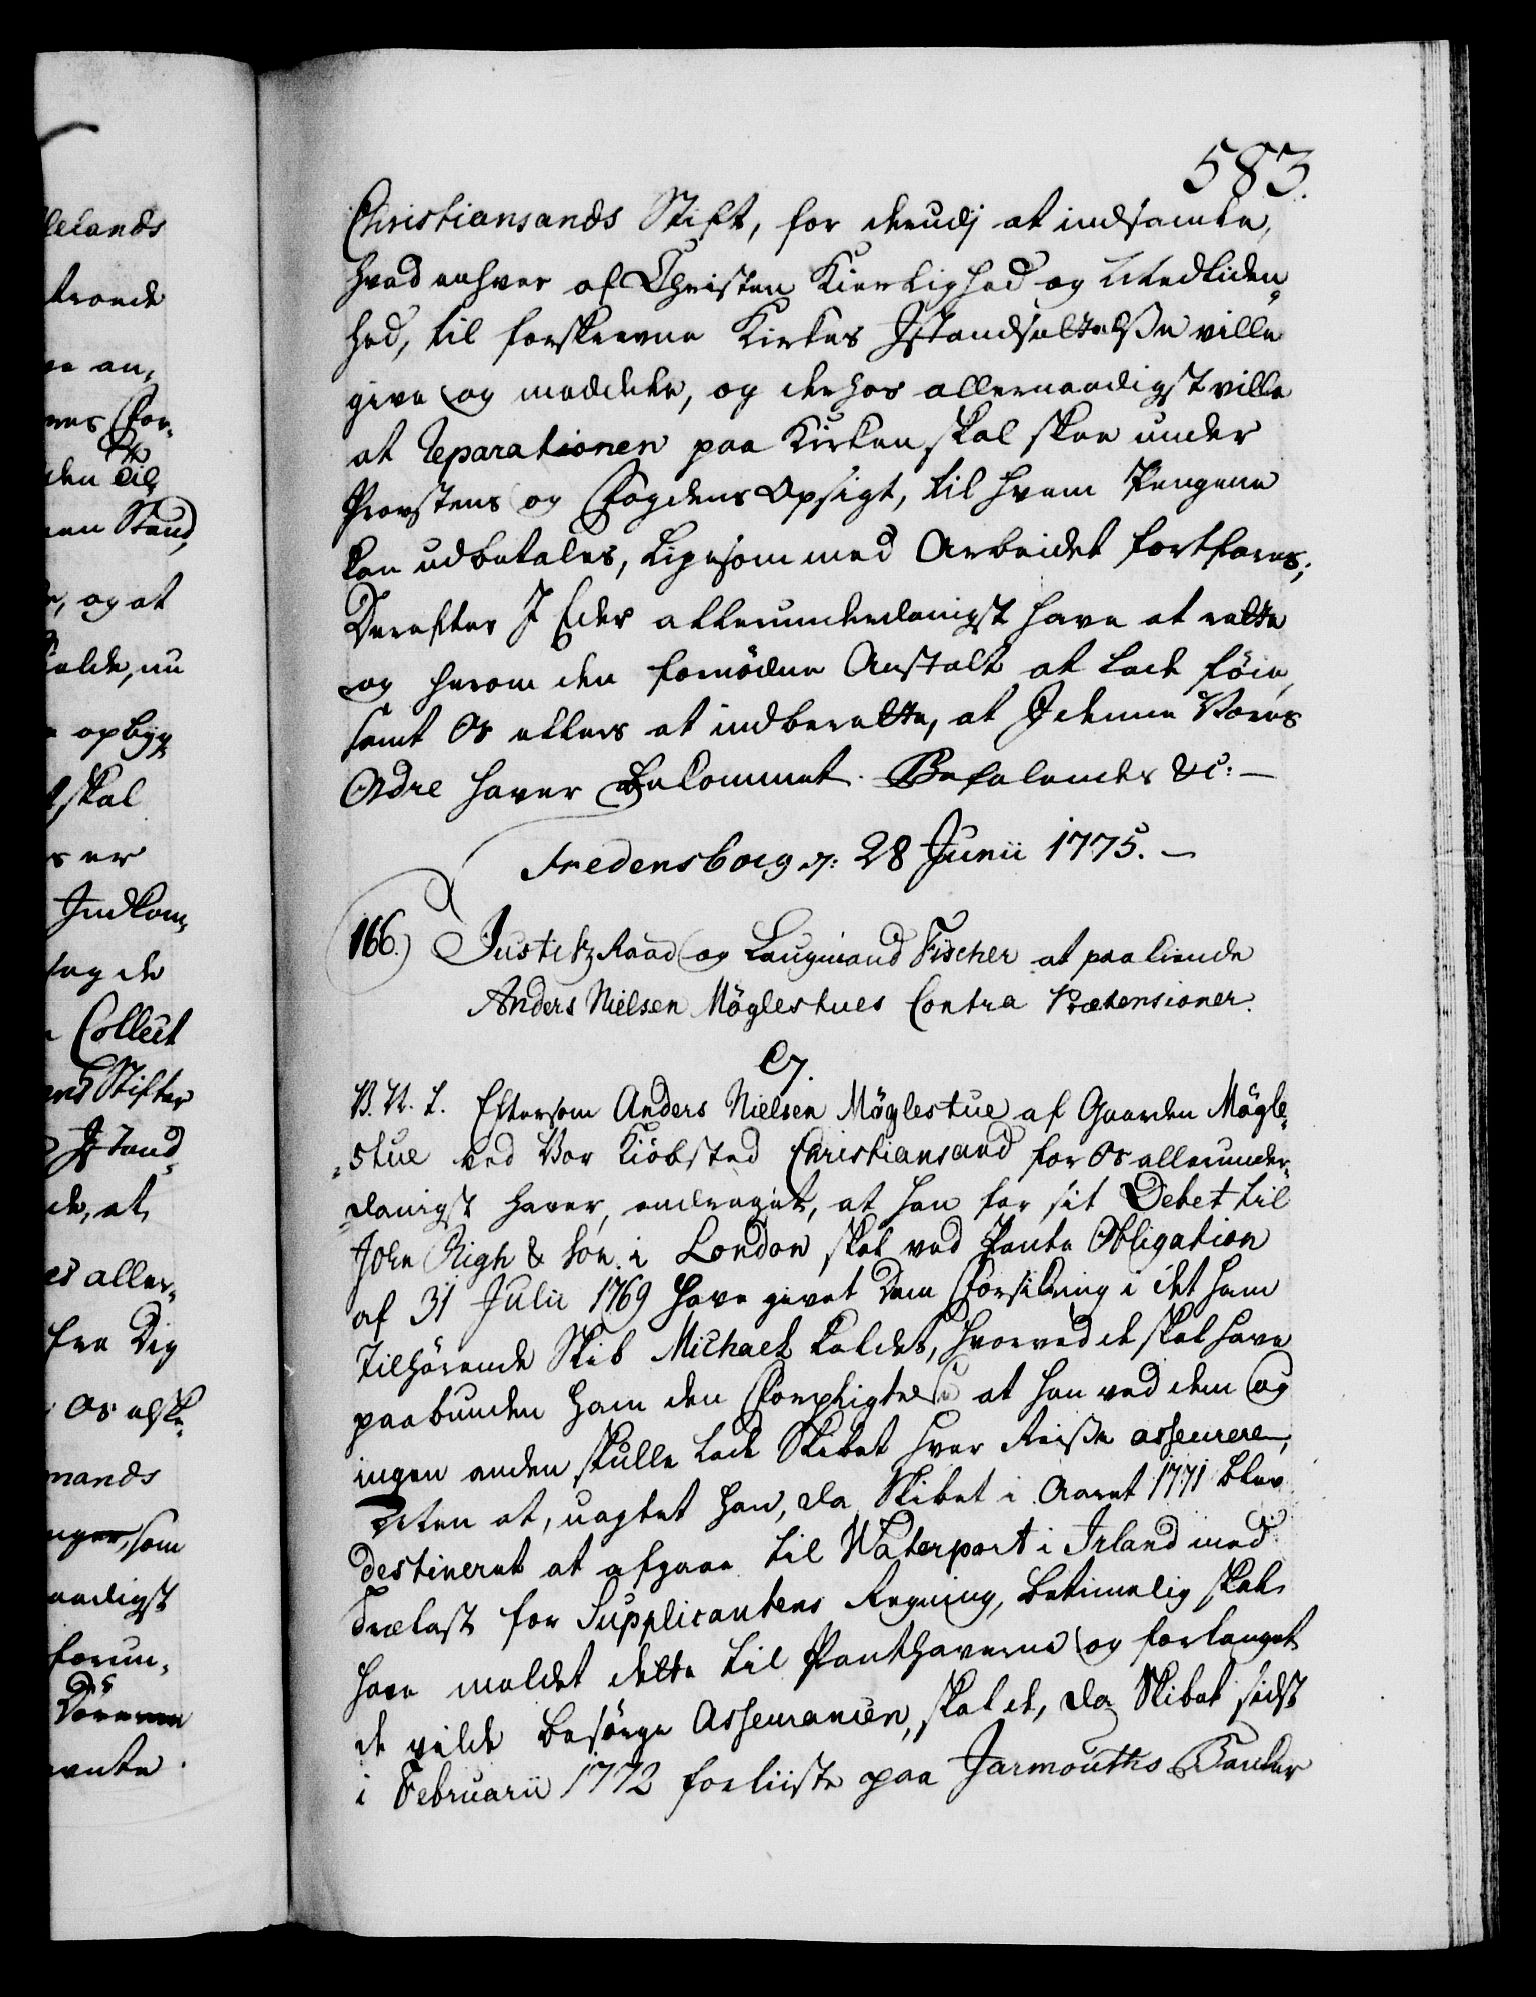 583.
Christiansands Stift, for derudj at indsamle,
hvad enhver af Christen Kierlighed og Medliden-
hed, til forskrevne Kirkes Jstandsættelsse ville
give og meddele, og derhos allernaadigst ville
at Reparationen paa Kirken skal skee under
Provstens og Fogdens Opsigt, til hvem Pengene
kan udbetales, ligesom med Arbeidet fortfares;
Derefter J Eder allerunderdanigst have at rette
og herom den fornødne Anstalt at lade føie,
samt Os ellers at indberette, at J denne Vores
Ordre haver bekommet. Befalendes &c: —
Fredensborg d: 28 Junii 1775. —
166.) Justitz Raad og Laugmand Fischer at paakiende
Anders Nielsen Møglestues Contra Prætensioner.
C7.
V. U. T. Eftersom Anders Nielsen Møglestue af Gaarden Mögle-
stue ved Vor Kiöbsted Christiansand for Os allerunder-
danigst haver, andraget, at han for sit Debet til
John Righ & Søn i London skal ved Pante Obligation
af 31 Julii 1769 have givet Dem Forsikring i det ham
tilhørende Skib Michael kaldet, hvorved de skal have
paabunden ham den Forpligtelse at han ved dem og
ingen anden skulle lade Skibet hver Reisse asseurere,
Men at, uagtet han, da Skibet i Aaret 1771 blev
destineret at afgaae til Waterport i Irland med
Trælast for Supplicantens Regning, betimelig skal
have meldet dette til Panthaverne og forlanget
de vilde besørge Asseurancen, skal de, da Skibet sidst
i Februarii 1772 forliiste paa Jarmouths Banker